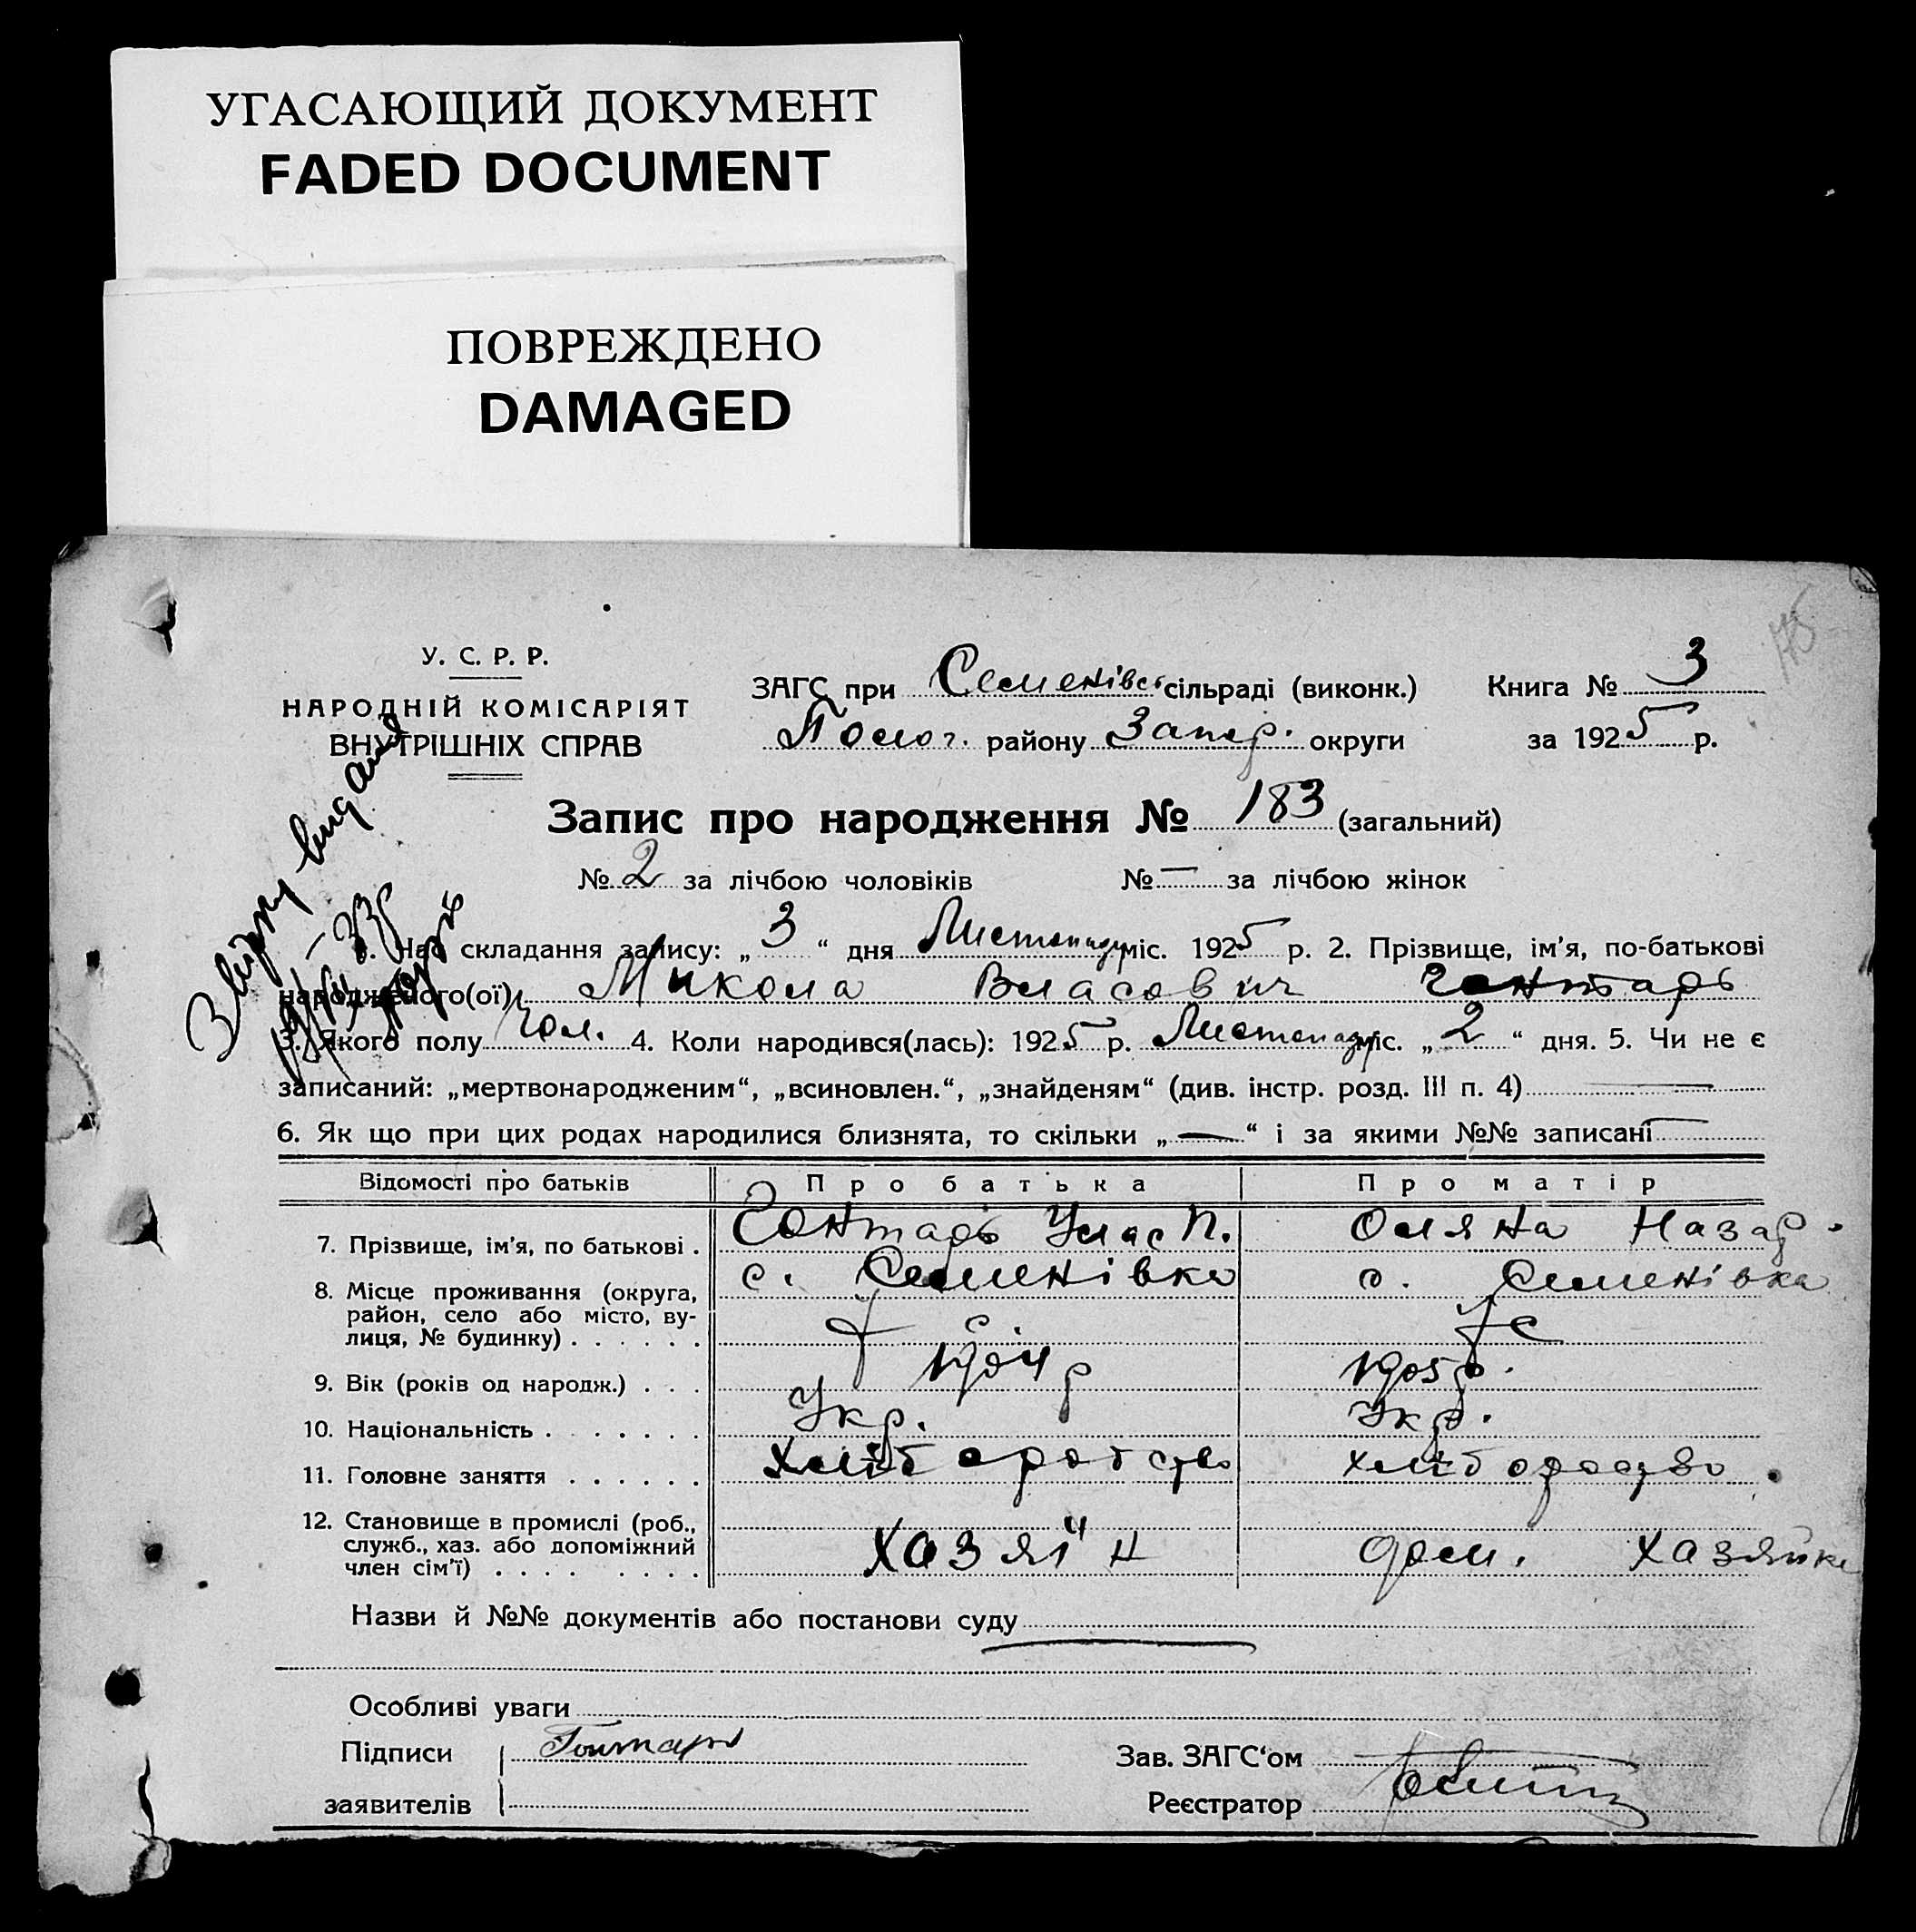 УГАСАЮЩИЙ ДОКУМЕНТ
FADED DOCUMENT
ПОВРЕЖДЕНО
DAMAGED
175
У. С. Р. Р.
НАРОДНІЙ КОМІСАРІЯТ
ВНУТРІШНІХ СПРАВ
ЗАГС при Семенівсь сільраді (виконк.) Книга № 3
Полог. району Запор. округи за 1925 р.
Запис про народження № 183 (загальний)
№ 2 за лічбою чоловіків № — за лічбою жінок
Звірку видана
1. Час складання запису: „ 3 “ дня Листопаду міс. 1925 р. 2. Прізвище, ім'я, по-батькові
народженого(ої) Микола Власович Гонтарь
3. Якого полу Чол. 4. Коли народився(лась): 1925 р. Листопаду міс. „ 2 “ дня. 5. Чи не є
записаний: „мертвонародженим“, „всиновлен.“, „знайденям“ (див. інстр. розд. III п. 4) —
6. Як що при цих родах народилися близнята, то скільки „ — “ і за якими №№ записані —
Відомості про батьків Про батька Про матір
7. Прізвище, ім'я, по батькові . Гонтарь Улас П. Оляна Назар.
8. Місце проживання (округа, район, село або місто, вулиця, № будинку) . . . . . . с. Семенівка с. Семенівка
9. Вік (років од народж.) . . . 1904 р 1905 р.
10. Національність . . . . . . . Укр. Укр.
11. Головне заняття . . . . . . Хліборобство хліборобство
12. Становище в промислі (роб., служб., хаз. або допоміжний член сім'ї) . . . . . . . . хазяїн дом. хазяйка
Назви й №№ документів або постанови суду
Особливі уваги
Підписи Гонтарь Зав. ЗАГС'ом
заявителів Реєстратор